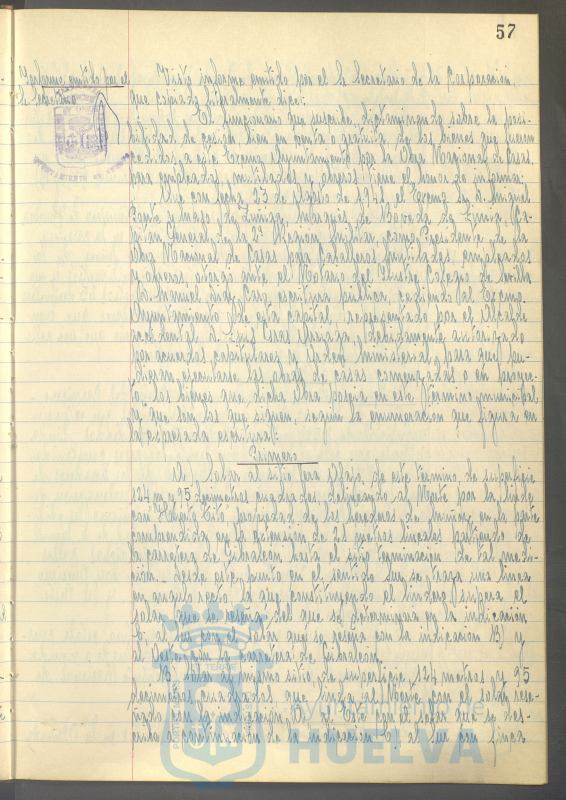 57
Informe emitido por el
Sr. Secretario
Visto informe emitido por el Sr. Secretario de la Corporación,
que copiado literalmente dice:
El funcionario que suscribe, dictaminando sobre la posi-
bilidad de cesión bien en venta o gratuita de los bienes que fueron
cedidos a este Excmo. Ayuntamiento por la Obra Nacional de Casas
para empleados, mutilados y obreros, tiene el honor de informar:
Que con fecha 23 de Agosto de 1941, el Excmo. Sr. D. Miguel
Ponte y Manso de Zúñiga, Marqués de Bóveda de Limia, Ca-
pitán General de la 2ª Región Militar, como Presidente de la
Obra Nacional de Casas para Caballeros mutilados, empleados
y obreros, otorgó ante el Notario del Ilustre Colegio de Sevilla
D. Manuel escritura pública, cediendo al Excmo.
Ayuntamiento de esta capital, representado por el Alcalde
accidental D. debidamente autorizado
por acuerdos capitulares y Orden Ministerial, para que pu-
dieran ejecutarse las obras de casas comenzadas o en proyec-
to, los bienes que dicha Obra poseía en este término municipal,
y que son los que siguen, según la enumeración que figura en
la expresada escritura:
Primero
A). Solar al sitio de este término, de superficie
124 m. y 95 decímetros cuadrados, delineando al Norte por la linde
con "Huerto Tito" propiedad de los herederos de Muñoz, en la parte
comprendida en la extensión de 21 metros lineales partiendo de
la carretera de Gibraleón hasta el sitio terminación de tal medi-
ción. - Desde este punto en el sentido Sur se traza una línea
en ángulo recto la que constituyendo el lindero separa el
solar que se reseña del que se determinará en la indicación
al Sur con el solar que se reseña con la indicación B) y
al con la carretera de Gibraleón.
B) Solar al mismo sitio de superficie, 124 metros y 95
decímetros cuadrados que linda al Norte con el solar rese-
ñado con la indicación A) y Este con el solar que se des-
cribe a continuación de la indicación C) al Sur con finca
Ayuntamiento de
HUELVA